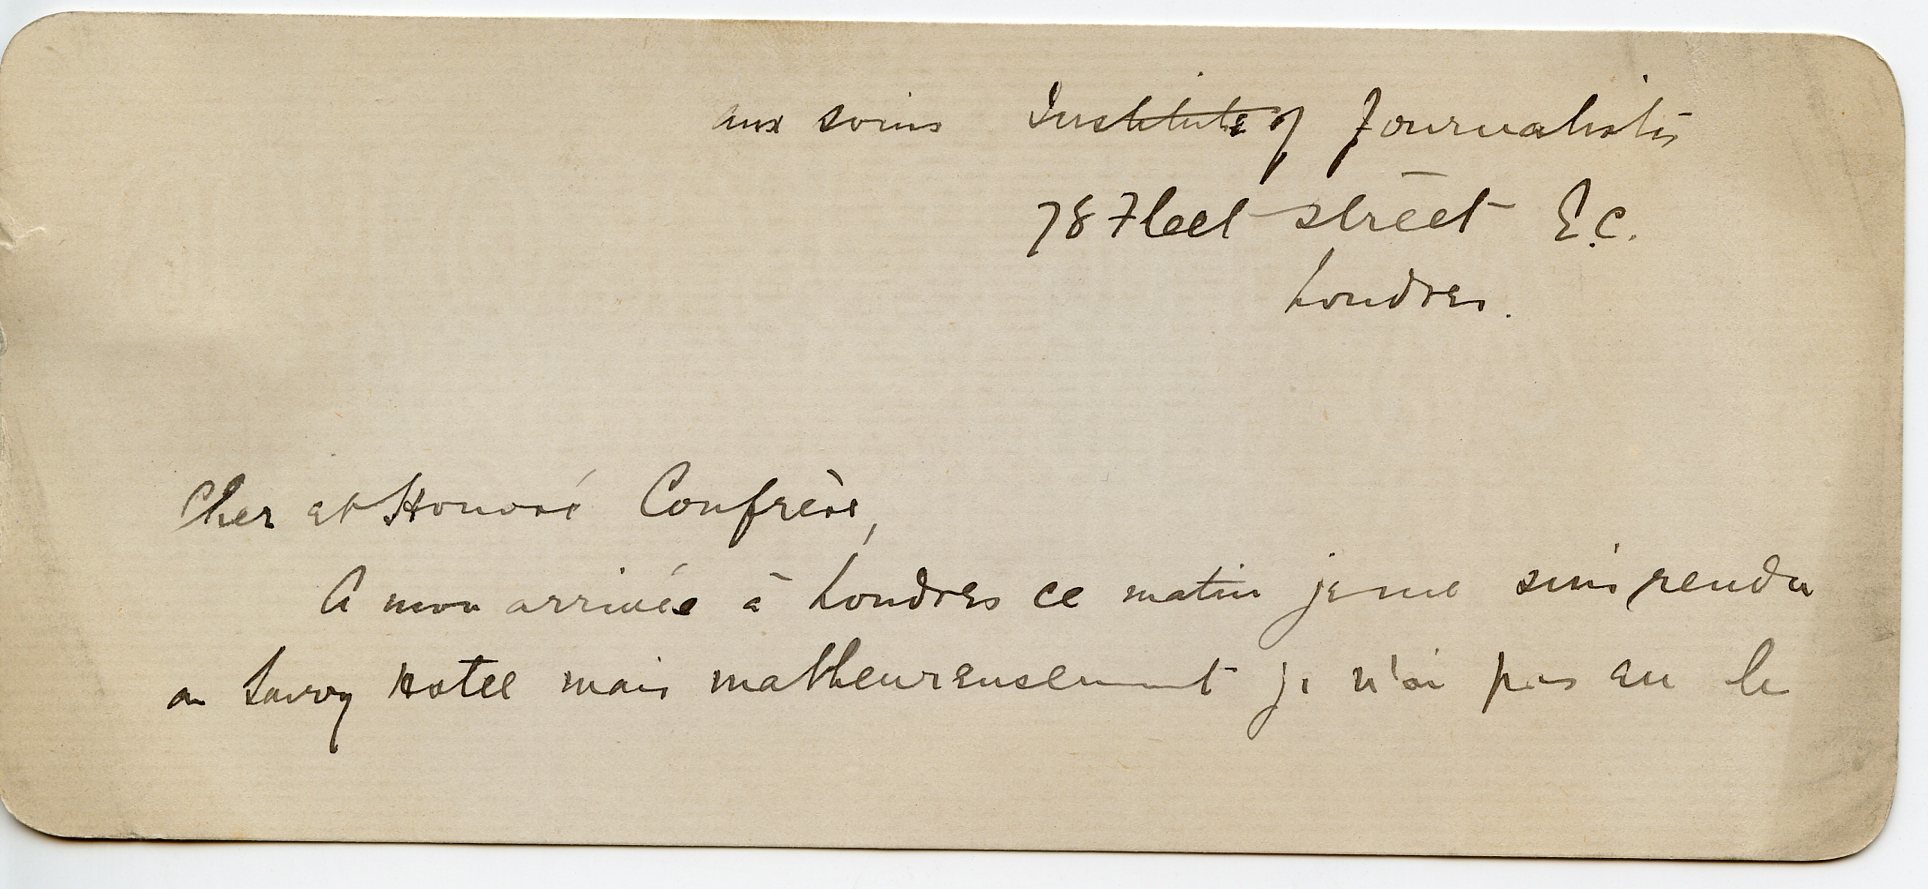 aux soins Institute of Journalists
78 Fleet Street E.C.
Londres.
Cher et Honoré Confrère,
A mon arrivée à Londres ce matin je me suis rendu
au Savoy Hotel mais malheureusement je n'ai pas eu le